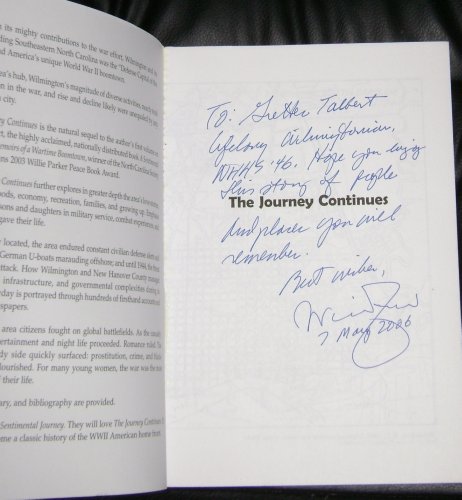 its mighty contributions to the war effort. Wilmington and its
ding Southeastern North Carolina was the "Defense Capital of the
d America's unique World War II boomtown.
a's hub, Wilmington's magnitude of diverse activities, much
n in the war, and rise and decline likely were unequaled by any
city.
ey Continues is the natural sequel to the author's first volume
t, the highly acclaimed, nationally distributed book A Sentimental
emoirs of a Wartime Boomtown, winner of the North Carolina Society
ns 2003 Willie Parker Peace Book Award.
Continues further explores in greater depth the area's
ods, economy, recreation, families, and growing up. Emphasis
sons and daughters in military service, combat experiences, and
gave their life.
y located, the area endured constant civilian defense
German U-boats marauding offshore; and until 1944, the threat
ttack. How Wilmington and New Hanover County
infrastructure, and governmental complexities during
day is portrayed through hundreds of firsthand accounts and
spapers.
area citizens fought on global battlefields. As the casualty
ertainment and night life proceeded. Romance ruled. The
dy side quickly surfaced: prostitution, crime, and
lourished. For many young women, the war was the most
f their life.
ary, and bibliography are provided.
Sentimental Journey. They will love The Journey Continues. It
me a classic history of the WWII American home front.
To: Gretter Talbert
lifelong Wilmingtonian,
NHHS '46. Hope you enjoy
this story of people
The Journey Continues
and places you will
remember.
Best wishes,
7 May 2006